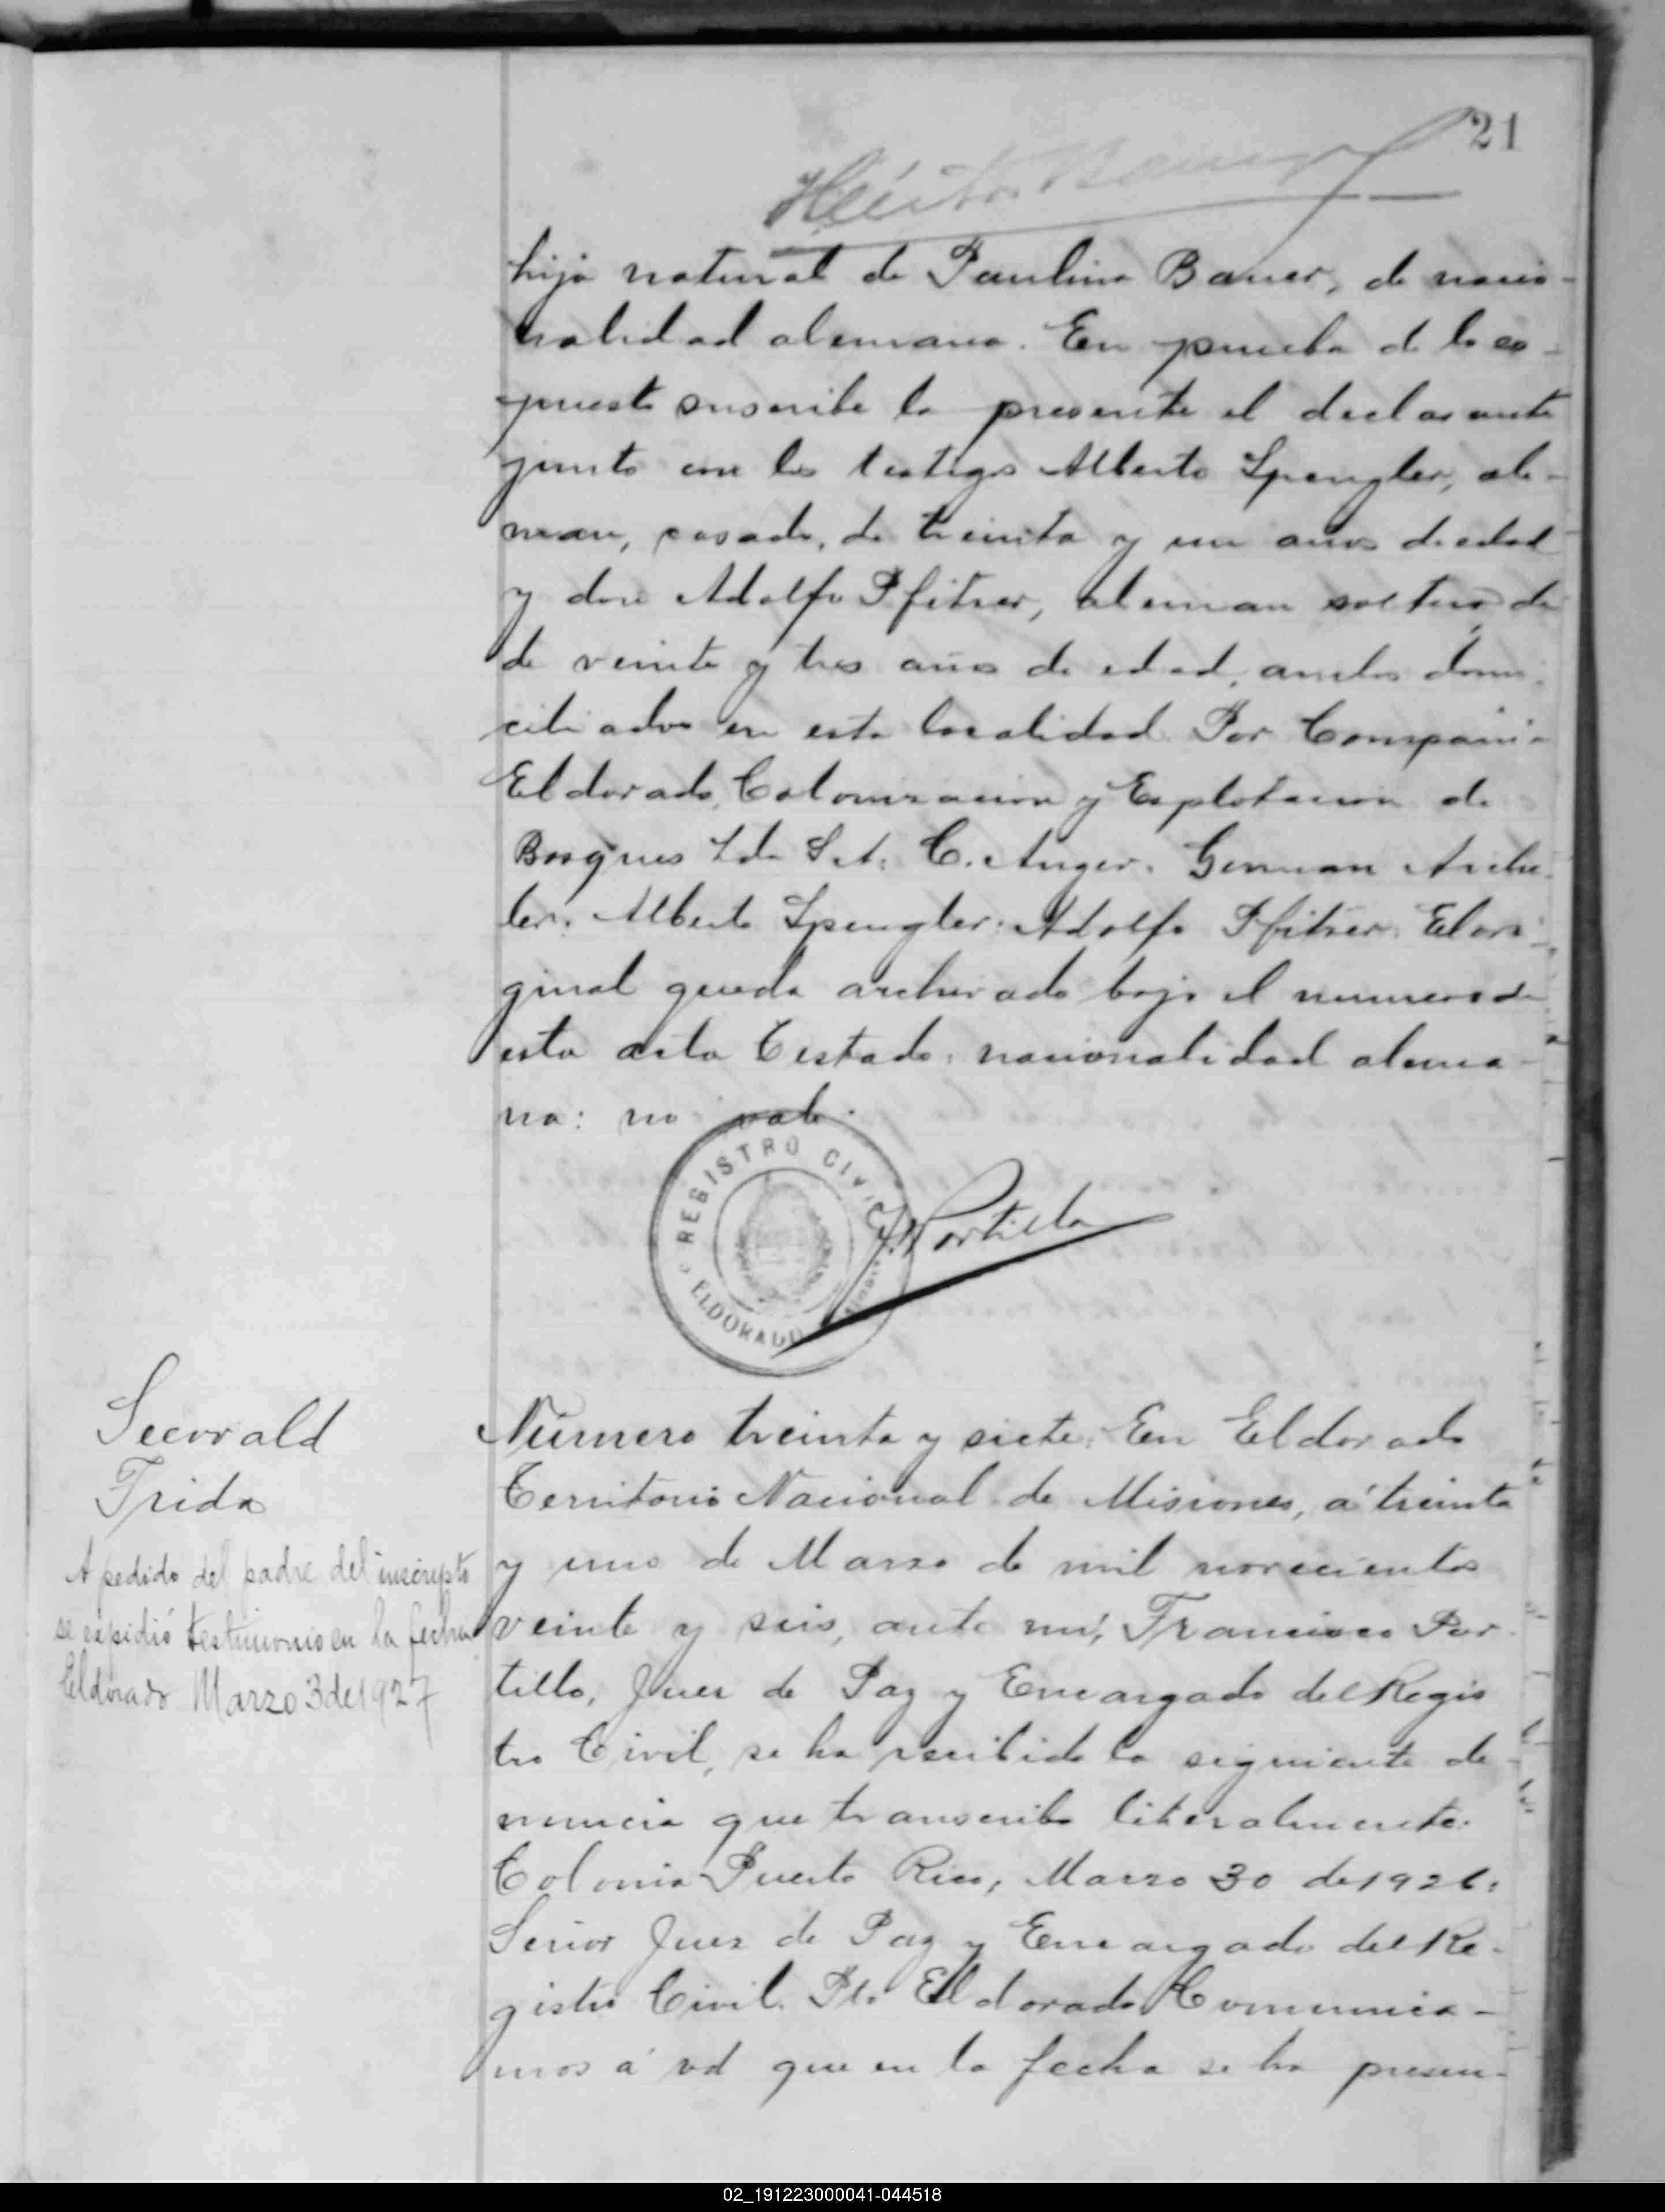 21
hijo natural de Paulina Bauer, de nacio-
nalidad alemana. En prueba de lo ex-
puesto suscribe la presente el declarante
junto con los testigos Alberto Spengler, ale-
man, casado, de treinta y un años de edad
y don Adolfo Pfitzer, aleman soltero, de
de veinte y tres años de edad, ambos domi-
ciliados en esta localidad. Por Compañia
Eldorado, Colonizacion y Explotacion de
Bosques Lda S.A: C. Auger. German
ler. Alberto Spengler: Adolfo Pfitzer. El ori-
ginal queda archivado bajo el numero de
esta acta Testado: nacionalidad alema-
na: no vale.
REGISTRO CIVIL
ELDORADO
Portillo
Seewald
Frida
A pedido del padre del inscripto
se expidió testimonio en la fecha
Eldorado Marzo 3 de 1927
Número treinta y siete: En Eldorado
Territorio Nacional de Misiones, á treinta
y uno de Marzo de mil novecientos
veinte y seis, ante mí, Francisco Por-
tillo, Juez de Paz y Encargado del Regis
tro Civil, se ha recibido la siguiente de-
nuncia que transcribo literalmente:
Colonia Puerto Rico, Marzo 30 de 1926:
Señor Juez de Paz y Encargado del Re-
gistro Civil. Pto Eldorado Comunica-
mos á vd que en la fecha se ha presen-
02_191223000041-044518